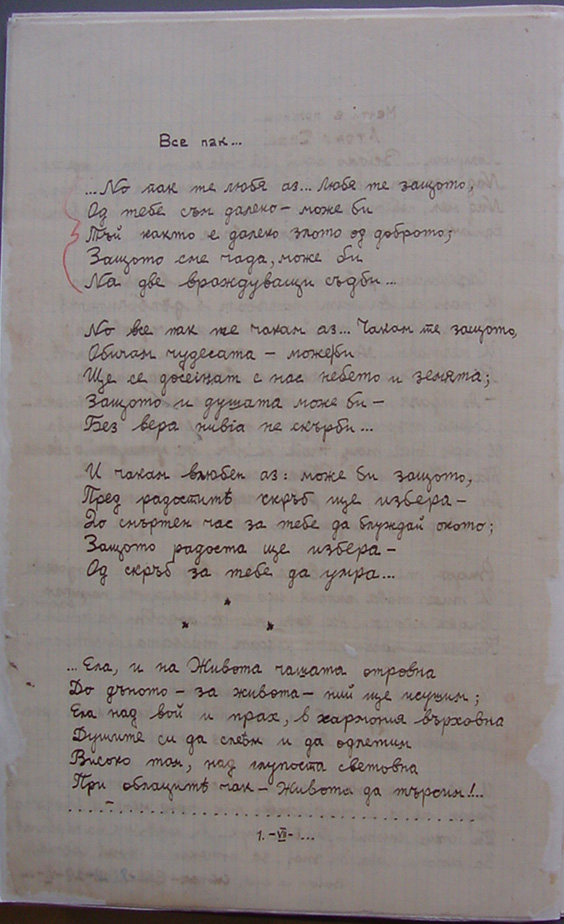 Все пак...
...No пак те любя аз... Любя те защото,
Од тебе съм далеко – може би
Тъй както е далеко злото од доброто;
Защото сме чада, може би
Na две враждуващи съдби...
No все пак те чакам аз... Чакам те защото,
Обичам чудесата – може би
Ще се досегнат с нас небето и земята;
Защото и душата може би –
Без вера нивга не скърби...
И чакам влюбен аз: може би защото,
През радоститѣ скръб ще избера –
До смъртен час за тебе да блуждай окото;
Защото радоста ще избера –
Од скръб за тебе да умра...
* * *
...Ела, и на Живота чашата отровна
До дъното – за живота – ний ще исушим;
Ела над вой и прах, в хармония върховна
Душите си да слеѣм и да одлетим
Високо там, над глупоста световна
При облацитѣ чак – Живота да търсим!..
1. -VII- ...